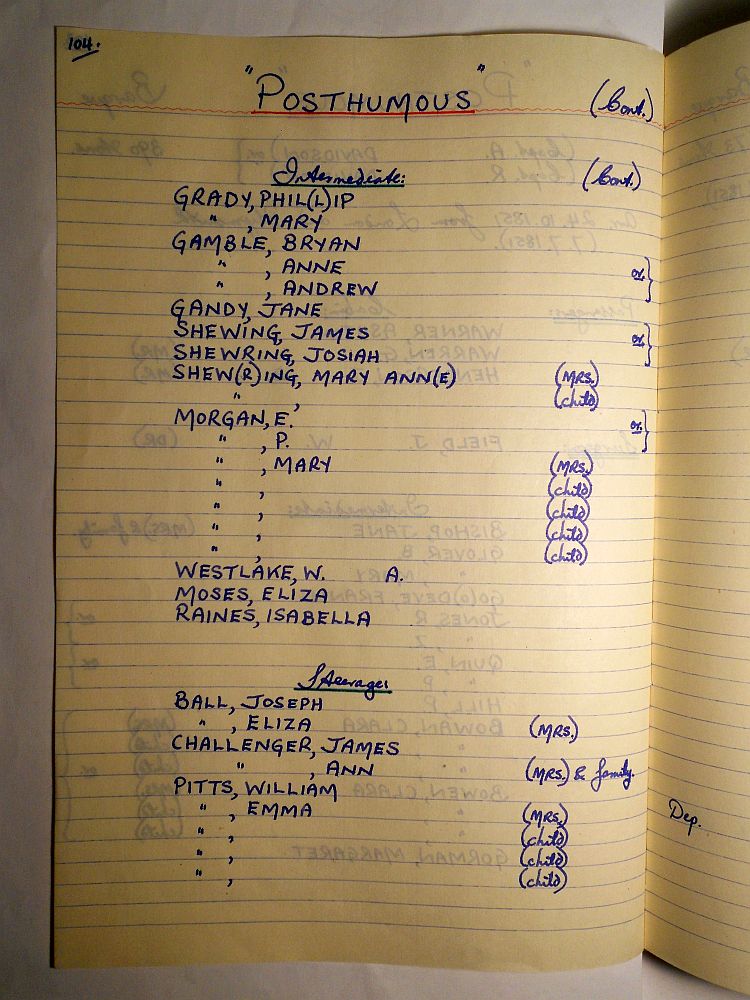 104.
"POSTHUMOUS" (Cont.)
Intermediate: (Cont.)
GRADY, PHIL(L)IP
" , MARY
GAMBLE, BRYAN
" , ANNE or }
" , ANDREW
GANDY, JANE
SHEWING, JAMES or }
SHEWRING, JOSIAH
SHEW(R)ING, MARY ANN(E) (MRS.)
" , (child)
MORGAN, E. or }
" , P.
" , MARY (MRS.)
" , (child)
" , (child)
" , (child)
" , (child)
WESTLAKE, W. A.
MOSES, ELIZA
RAINES, ISABELLA
Steerage:
BALL, JOSEPH
" , ELIZA (MRS.)
CHALLENGER, JAMES
" , ANN (MRS.) & family.
PITTS, WILLIAM
" , EMMA (MRS.)
" , (child)
" , (child)
" , (child)
Dep.